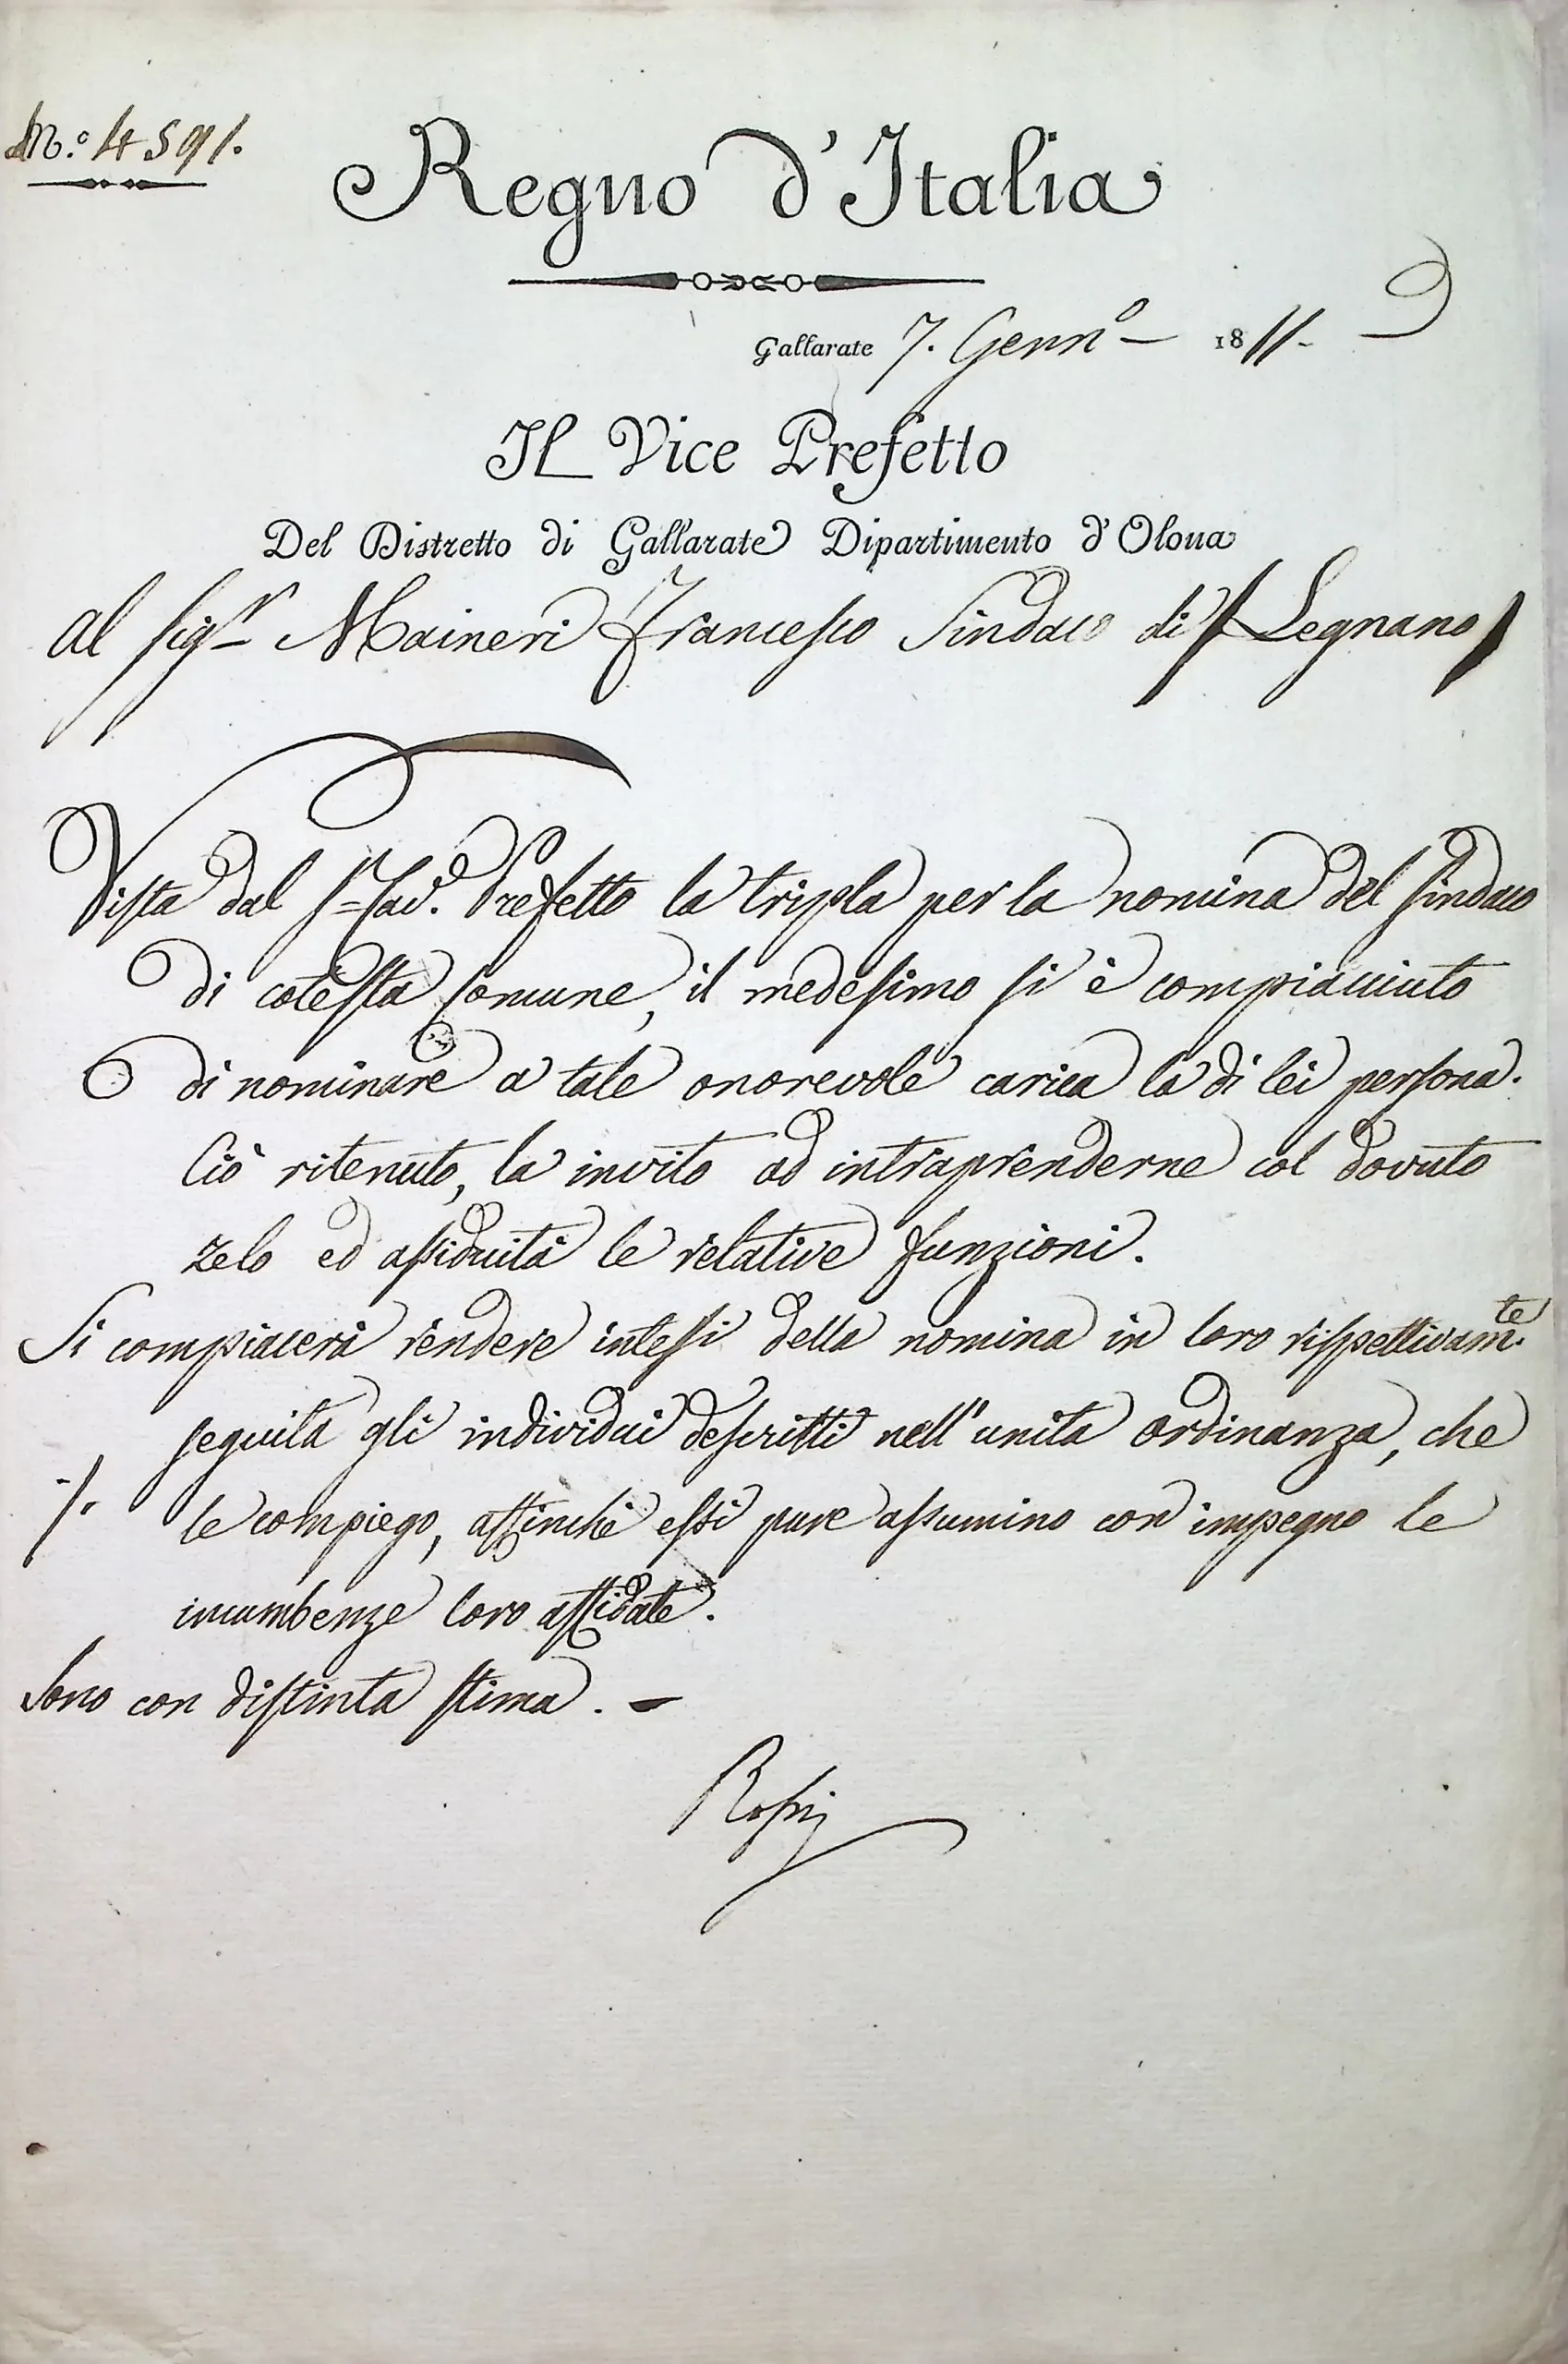 N.º 4591.
Regno d'Italia
Gallarate 7. Gennº 1811.
Il Vice Prefetto
Del Distretto di Gallarate Dipartimento d'Olona
Al Sigr Maineri Francesco Sindaco di Legnano
Vista dal Sr Cav. Prefetto la tripla per la nomina del Sindaco
di cotesta Comune, il medesimo si è compiacciuto
di nominare a tale onorevole carica la di lei persona.
Ciò ritenuto, la invito ad intraprenderne col dovuto
zelo ed assiduità le relative funzioni.
Si compiacerà rendere intesi della nomina in loro rispettivamte
seguita gli individui descritti nell'unita ordinanza, che
le compiego, affinchè essi pure assumino con impegno le
incumbenze loro affidate.
Sono con distinta stima. -
Rossi